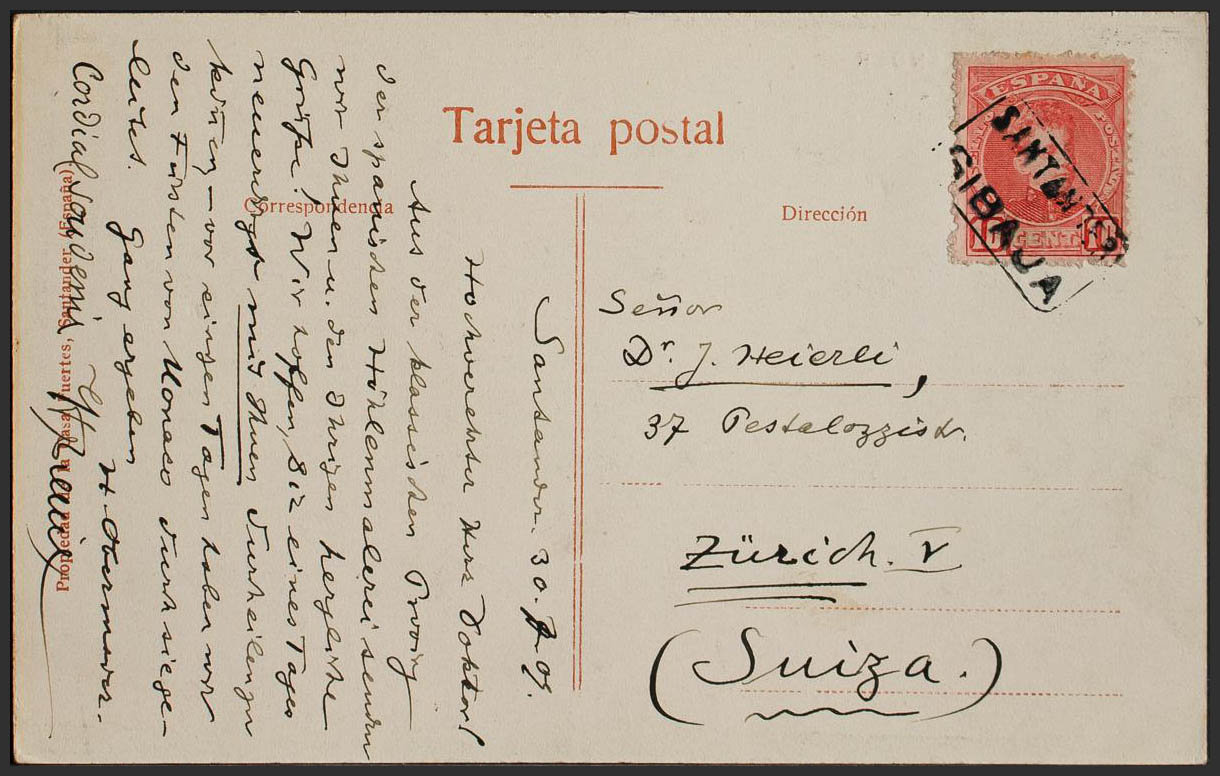 Tarjeta postal
Correspondencia
Dirección
ESPAÑA
SANTANDER
GIBAJA
Señor
Dr. J. Heierli,
37 Pestalozzistr.
Zürich. V
(Suiza.)
Santander. 30. 7. 09.
Hochverehrter Herr Doktor!
Aus der klassischen Provinz
der spanischen Höhlenmalerei senden
wir Ihnen u. den Ihrigen herzliche
Grüße! Wir hoffen, Sie eines Tages
neuerdings mit Ihnen durcheilen zu
können – vor einigen Tagen haben wir
den Fürsten von Monaco durch
Ganz ergeben
H. Obermaier.
Cordial souvenir H. Breuil
Propiedad de la Casa Fuertes, Santander (España)